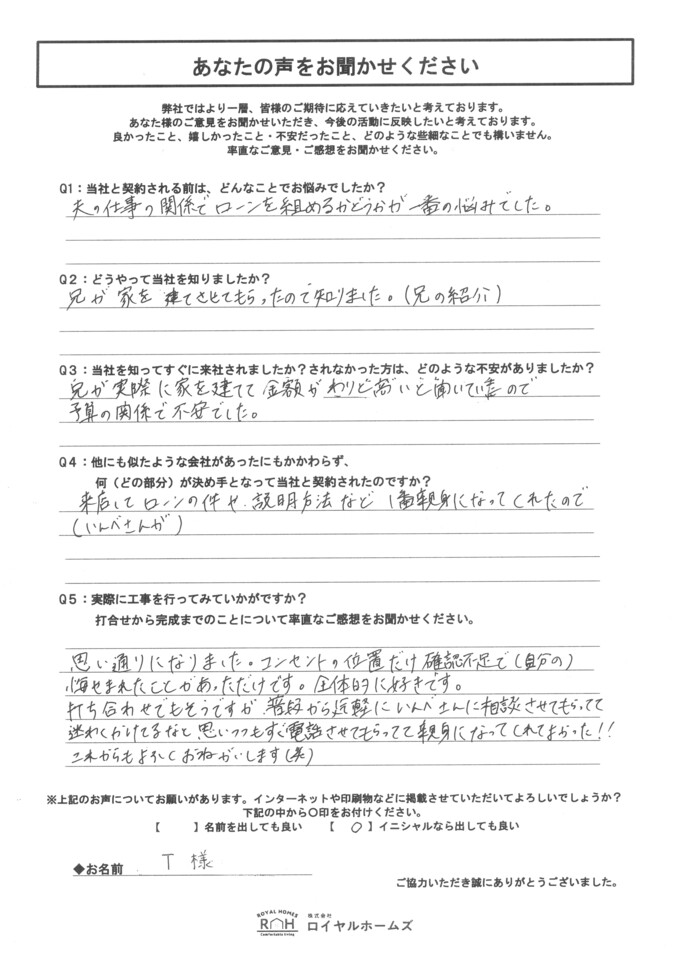 あなたの声をお聞かせください
弊社ではより一層、皆様のご期待に応えていきたいと考えております。
あなた様のご意見をお聞かせいただき、今後の活動に反映したいと考えております。
良かったこと、嬉しかったこと・不安だったこと、どのような些細なことでも構いません。
率直なご意見・ご感想をお聞かせください。
Q1：当社と契約される前は、どんなことでお悩みでしたか？
夫の仕事の関係でローンを組めるかどうかが一番の悩みでした。
Q2：どうやって当社を知りましたか？
兄が家を建てさせてもらったので知りました。（兄の紹介）
Q3：当社を知ってすぐに来社されましたか？されなかった方は、どのような不安がありましたか？
兄が実際に家を建てて金額がわりと高いと聞いていたので
予算の関係で不安でした。
Q4：他にも似たような会社があったにもかかわらず、
何（どの部分）が決め手となって当社と契約されたのですか？
来店してローンの件や、説明方法など1番親身になってくれたので
（いんべさんが）
Q5：実際に工事を行ってみていかがですか？
打合せから完成までのことについて率直なご感想をお聞かせください。
思い通りになりました。コンセントの位置だけ確認不足で（自分の）
悔やまれたことがあっただけです。全体的に好きです。
打ち合わせでもそうですが普段から気軽にいんべさんに相談させてもらってて
迷わくかけてるなと思いつつもすぐ電話させてもらってて親身になってくれてよかった!!
これからもよろしくおねがいします（笑）
※上記のお声についてお願いがあります。インターネットや印刷物などに掲載させていただいてよろしいでしょうか？
下記の中から〇印をお付けください。
【　　】名前を出しても良い　【　〇　】イニシャルなら出しても良い
◆お名前　T 様
ご協力いただき誠にありがとうございました。
ROYAL HOMES
RH
Comfortable living
株式会社
ロイヤルホームズ